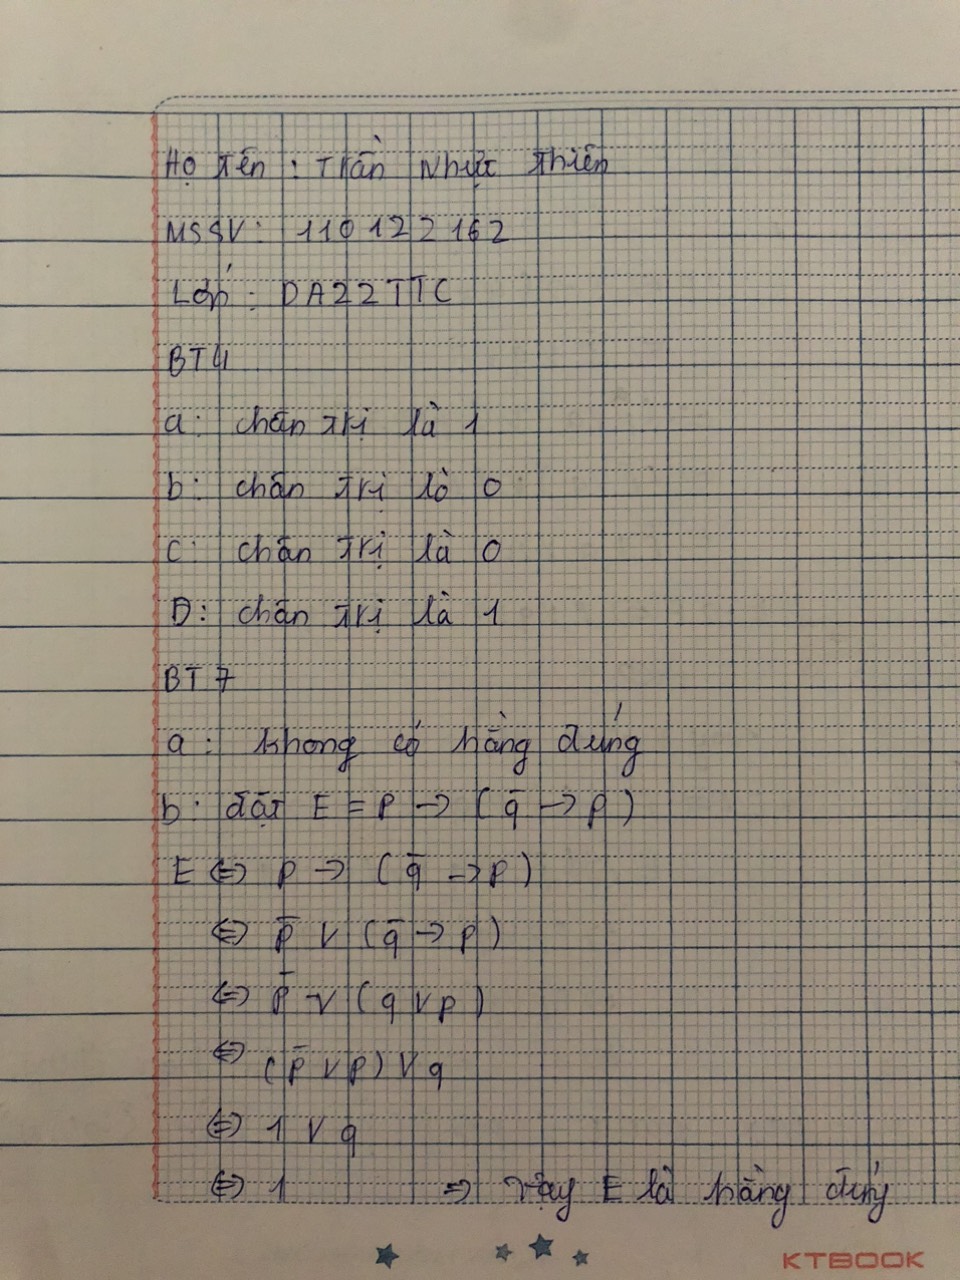 Họ tên : Trần Nhựt Thiên
MSSV: 110122162
Lớp : DA22TTC
BT4
a: chân trị là 1
b: chân trị lò 0
c: chân trị là 0
D: chân trị là 1
BT 7
a: không có hằng đúng
b: đặt E = P → ( q̄ → p )
E ⇔ p → ( q̄ → p )
⇔ p̄ ∨ ( q̄ → p )
⇔ p̄ ∨ ( q ∨ p )
⇔ ( p̄ ∨ p ) ∨ q
⇔ 1 ∨ q
⇔ 1 ⇒ Vậy E là hằng đúng
KTBOOK